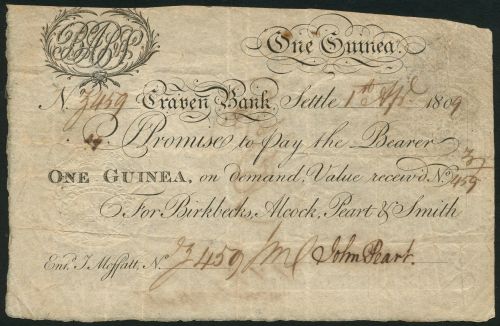 One Guinea.
No. J459 Craven Bank, Settle 1st Apl. 1809
I Promise to pay the Bearer
ONE GUINEA, on demand, Value receiv'd No. J/459
For Birkbecks, Alcock, Peart & Smith
Entd. J. Moffatt, No. J459 John Peart.